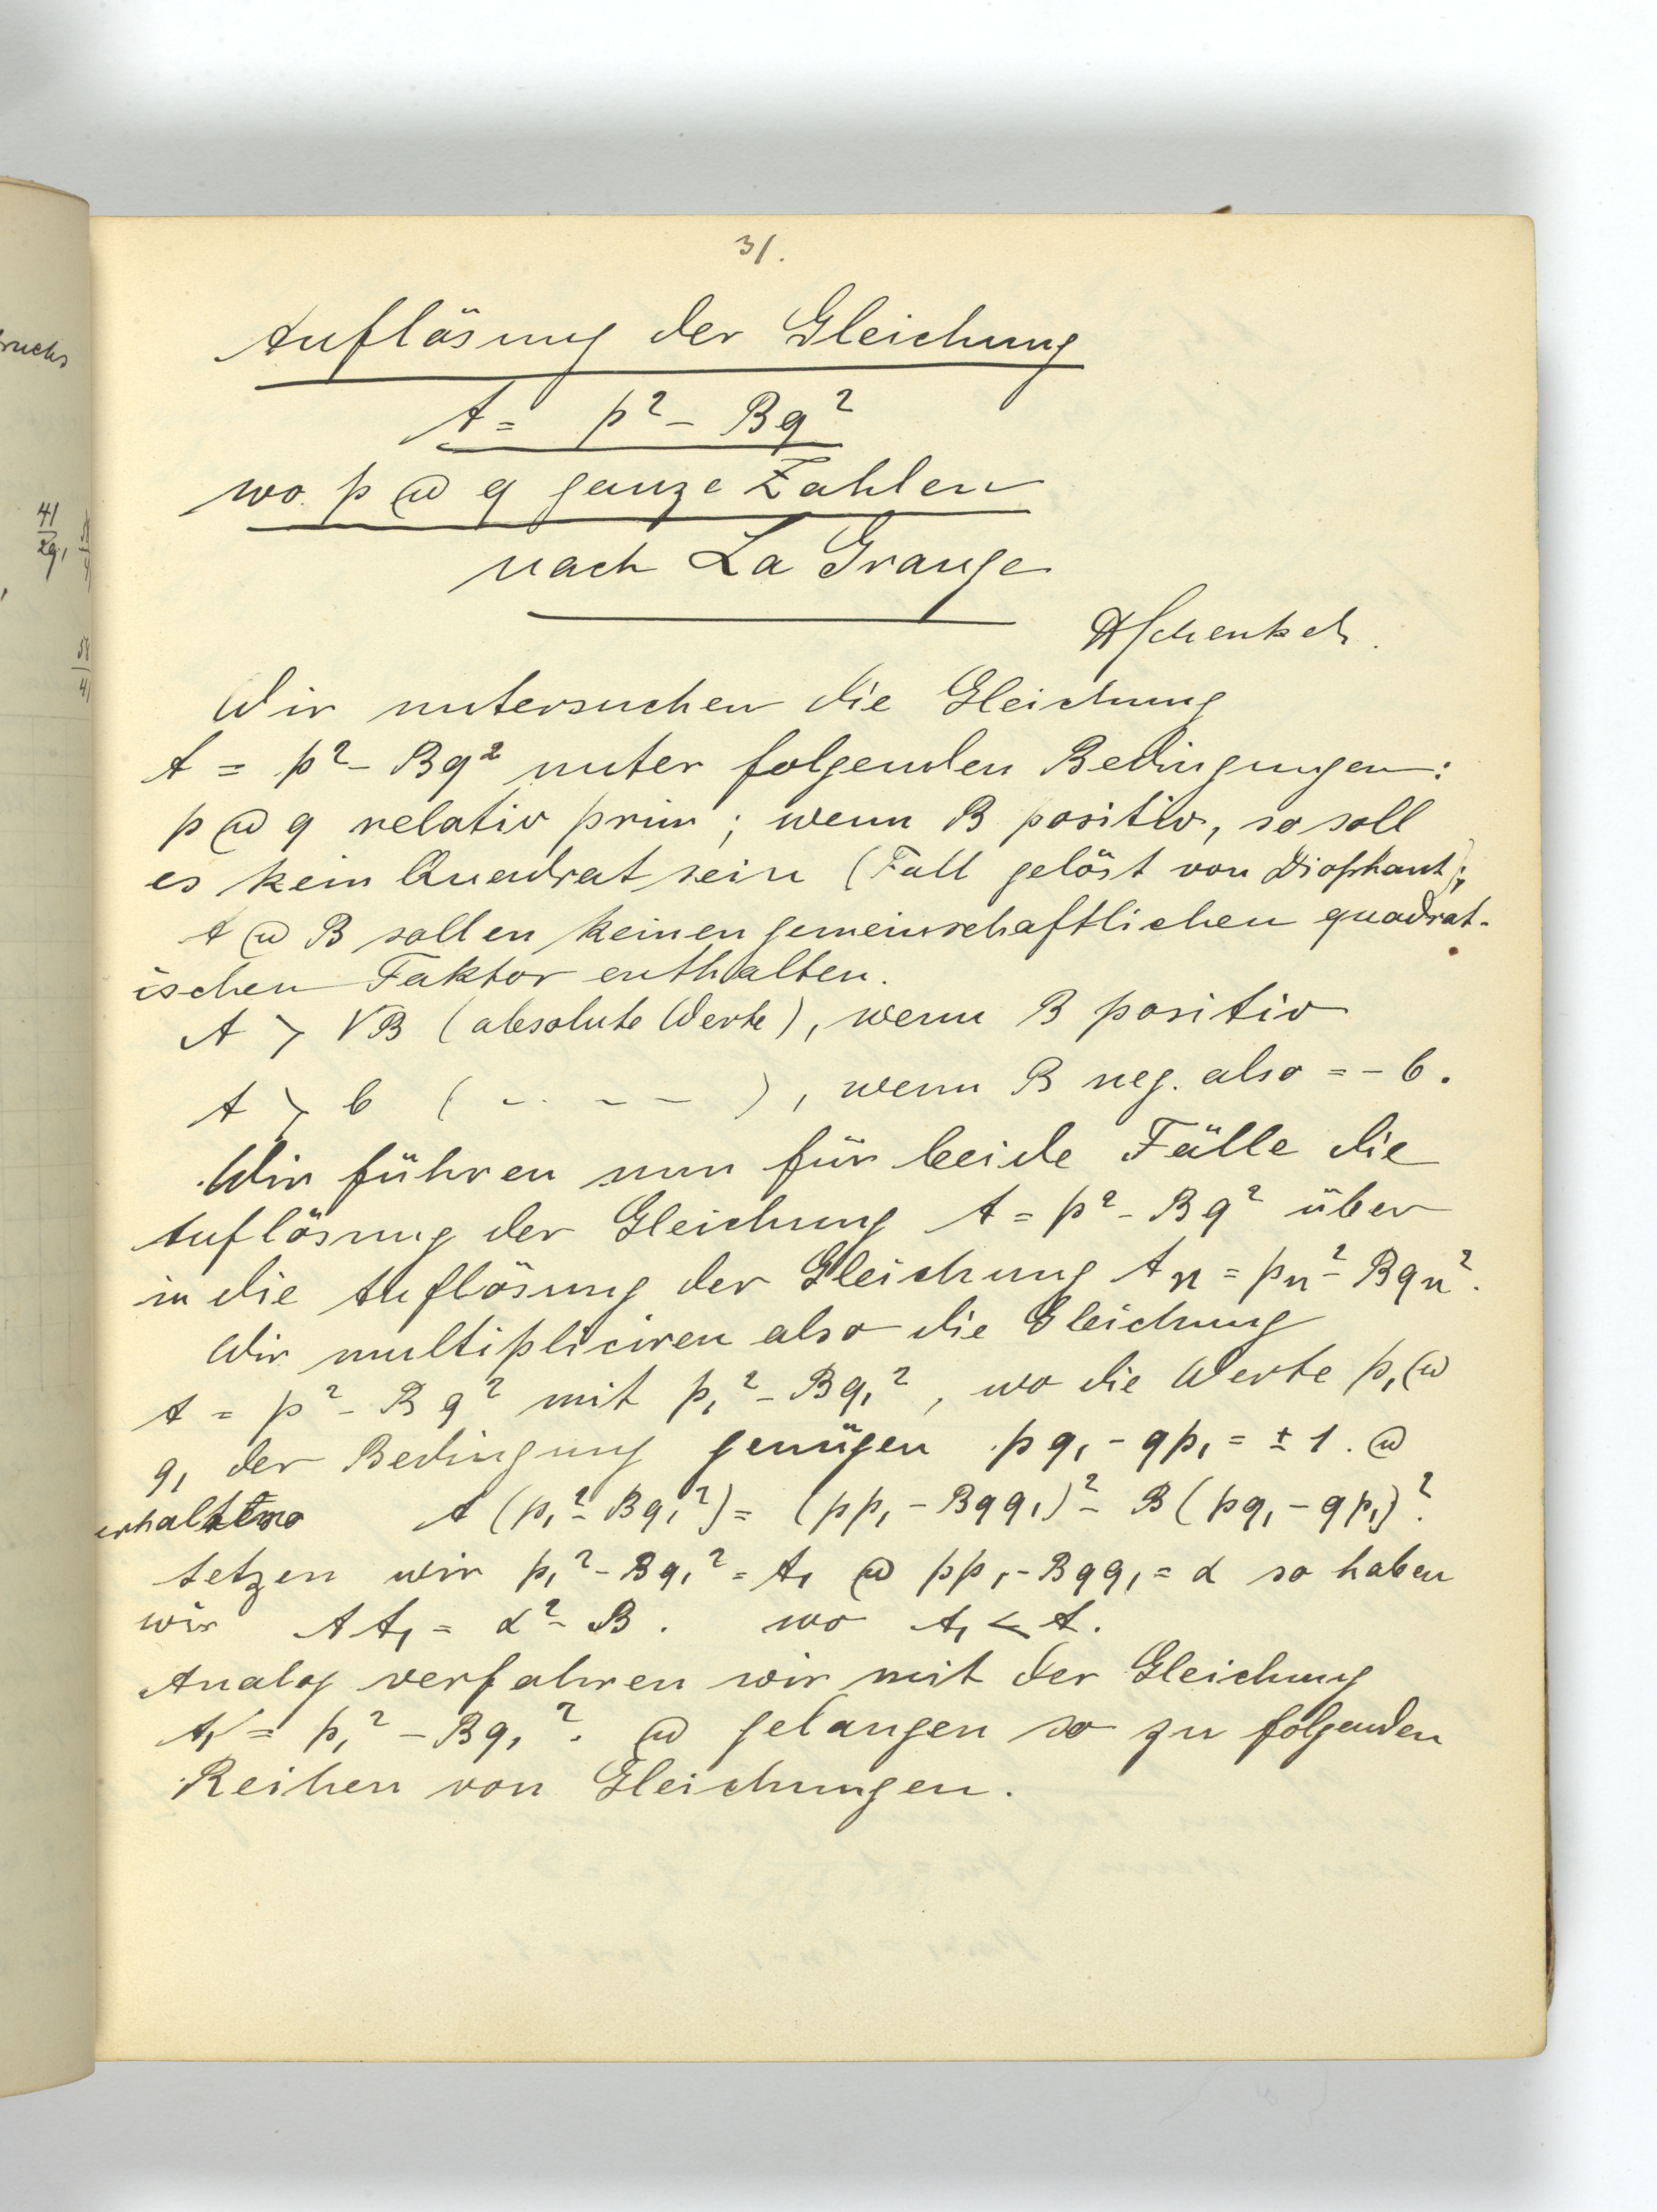 31.
Auflösung der Gleichung
A = p² - Bq²
wo p @ q ganze Zahlen
nach La Grange
Wir untersuchen die Gleichung
A = p² - Bq² unter folgenden Bedingungen:
p @ q relativ prim; wenn B positiv, so soll
es kein Quadrat sein (Fall gelöst von Diophant);
A @ B sollen keinen gemeinschaftlichen quadrat-
ischen Faktor enthalten.
A > √B (absolute Werte), wenn B positiv
A > b ( - - - - ), wenn B neg. also = - b.
Wir führen nun für beide Fälle die
Auflösung der Gleichung A = p² - Bq² über
in die Auflösung der Gleichung Aₙ = pₙ² - Bqₙ².
Wir multipliciren also die Gleichung
A = p² - Bq² mit p₁² - Bq₁², wo die Werte p₁ @
q₁ der Bedingung genügen pq₁ - qp₁ = ± 1. @
A (p₁² - Bq₁²) = (pp₁ - Bqq₁)² - B (pq₁ - qp₁)².
setzen wir p₁² - Bq₁² = A₁ @ pp₁ - Bqq₁ = α so haben
wir A A₁ = α² - B. wo A₁ < A.
Analog verfahren wir mit der Gleichung
A₁ = p₁² - Bq₁². @ gelangen so zu folgenden
Reihen von Gleichungen.
ruchs
41
29,
58
41